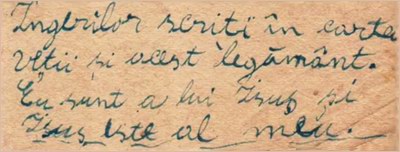 Îngerilor scriti în cartea
vetii și acest legământ.
Eu sunt a lui Isus și
Isus este al meu.